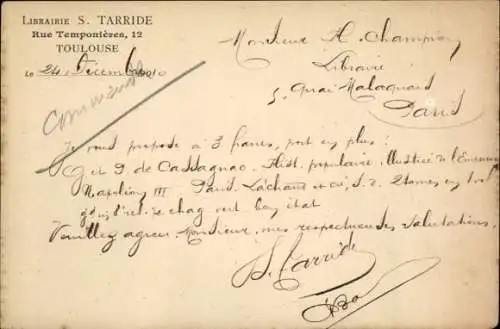 LIBRAIRIE S. TARRIDE
Rue Temponières, 12
TOULOUSE
LE 24 Décembre 1910
Monsieur H. Champion
Libraire
5, Quai Malaquais
Paris
Je vous propose à 3 francs, port en plus :
P. de Cassagnac. Hist. populaire, Illustrée de l'Empereur
Napoléon III Paris. Lachaud et 2 tomes en
chag vert état
Veuillez agréer Monsieur, mes respectueuses salutations,
S. Tarride